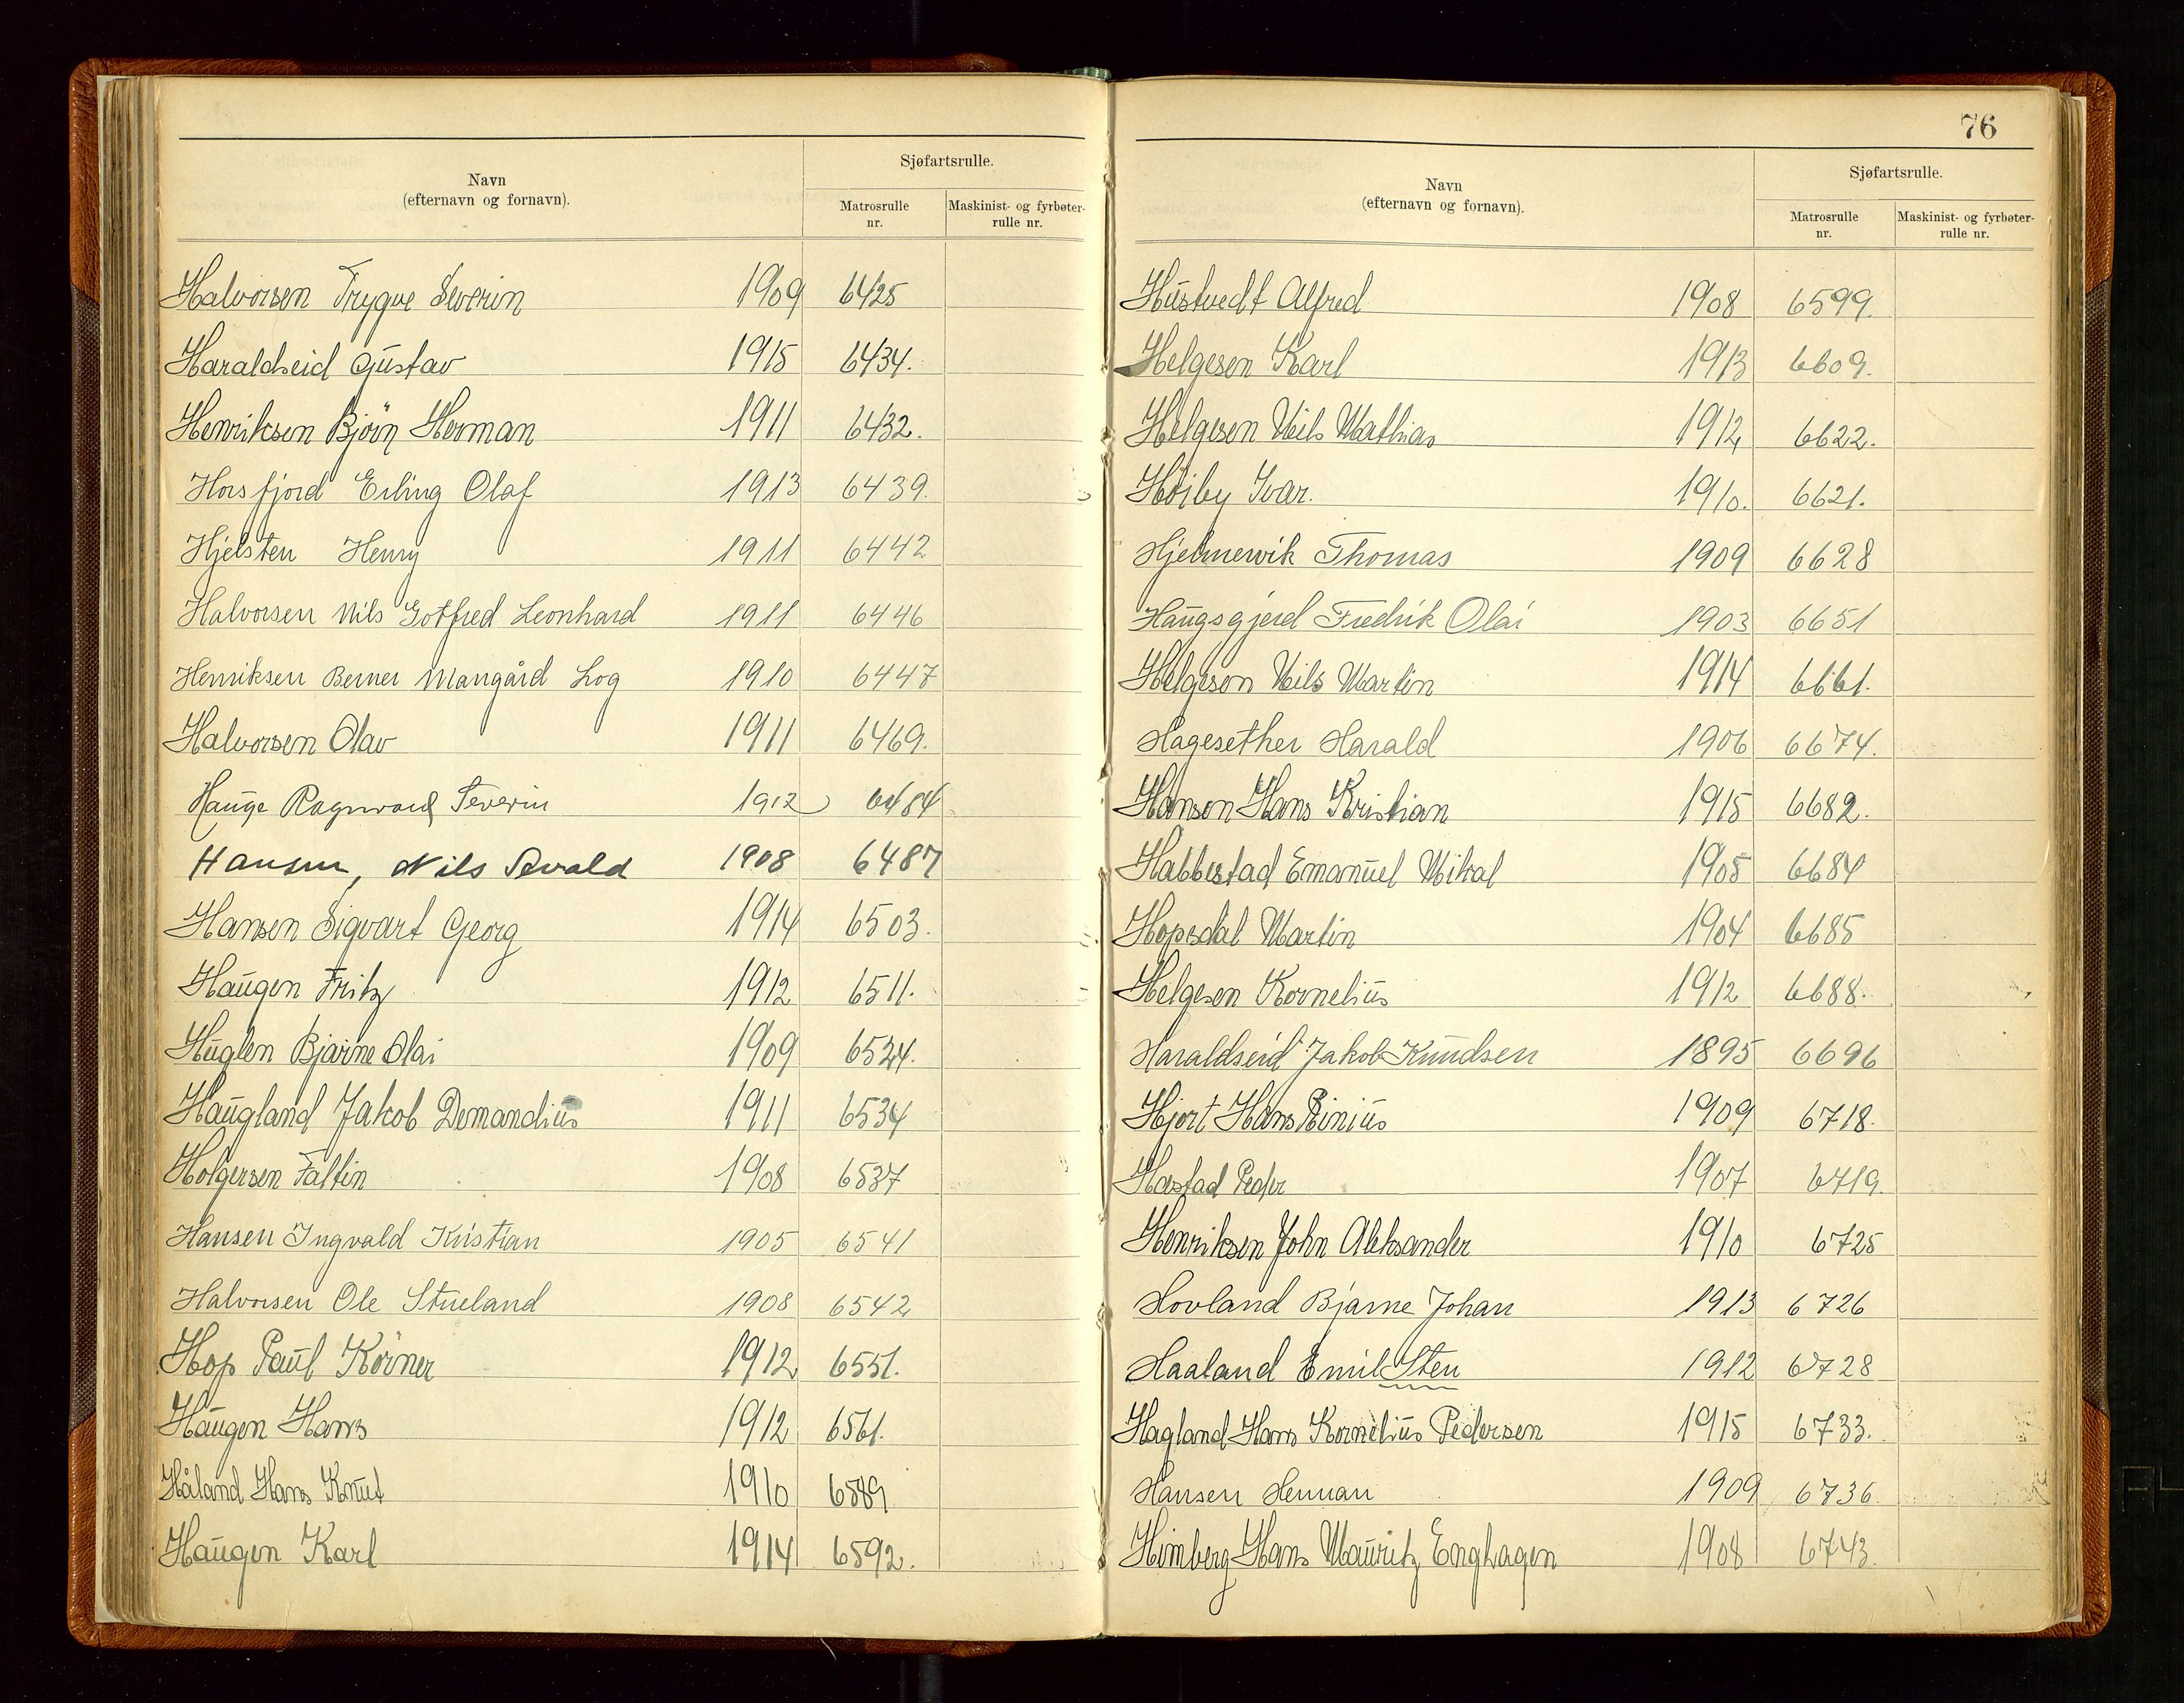 Navn
(efternavn og fornavn).
Sjøfartsrulle.
Matrosrulle nr.
Maskinist- og fyrbøter-rulle nr.
Halvorsen Trygve Severin 1909 6425
Haraldseid Gustav 1915 6434.
Henriksen Bjørn Herman 1911 6432.
Horsfjord Erling Olaf 1913 6439.
Hjelsten Henry 1911 6442
Halvorsen Nils Gotfred Leonhard 1911 6446
Henriksen Berner Mangård Log 1910 6447
Halvorsen Olav 1911 6469.
Hauge Ragnvald Severin 1912 6484
Hansen, Nils Sevald 1908 6487
Hansen Sigvart Georg 1914 6503.
Haugen Fritz 1912 6511.
Huglen Bjarne Olai 1909 6524.
Haugland Jakob Demandius 1911 6534
Holgersen Faltin 1908 6537
Hansen Ingvald Kristian 1905 6541
Halvorsen Ole Stueland 1908 6542
Hop Paul Körner 1912 6551.
Haugen Hans 1912 6561.
Håland Hans Knut 1910 6589
Haugen Karl 1914 6592.
76
Navn
(efternavn og fornavn).
Sjøfartsrulle.
Matrosrulle nr.
Maskinist- og fyrbøter-rulle nr.
Hustvedt Alfred 1908 6599.
Helgesen Karl 1913 6609.
Helgesen Nils Mathias 1912 6622.
Høiby Ivar. 1910. 6621.
Hjelmervik Thomas 1909 6628
Haugsgjerd Fredrik Olai 1903 6651
Helgeson Nils Martin 1914 6661.
Hagesether Harald 1906 6674.
Hanson Hans Kristian 1915 6682.
Habbestad Emanuel Mikal 1905 6684
Hopsdal Martin 1904 6685
Helgesen Kornelius 1912 6688.
Haraldseid Jakob Knudsen 1895 6696
Hjort Hans Rinius 1909 6718.
Hastad Peder 1907 6719.
Henriksen John Aleksander 1910 6725
Hovland Bjarne Johan 1913 6726
Haaland Emil Sten 1912 6728
Hagland Hans Kornelius Pedersen 1915 6733.
Hansen Herman 1909 6736.
Himberg Hans Mauritz Enghagen 1908 6743.